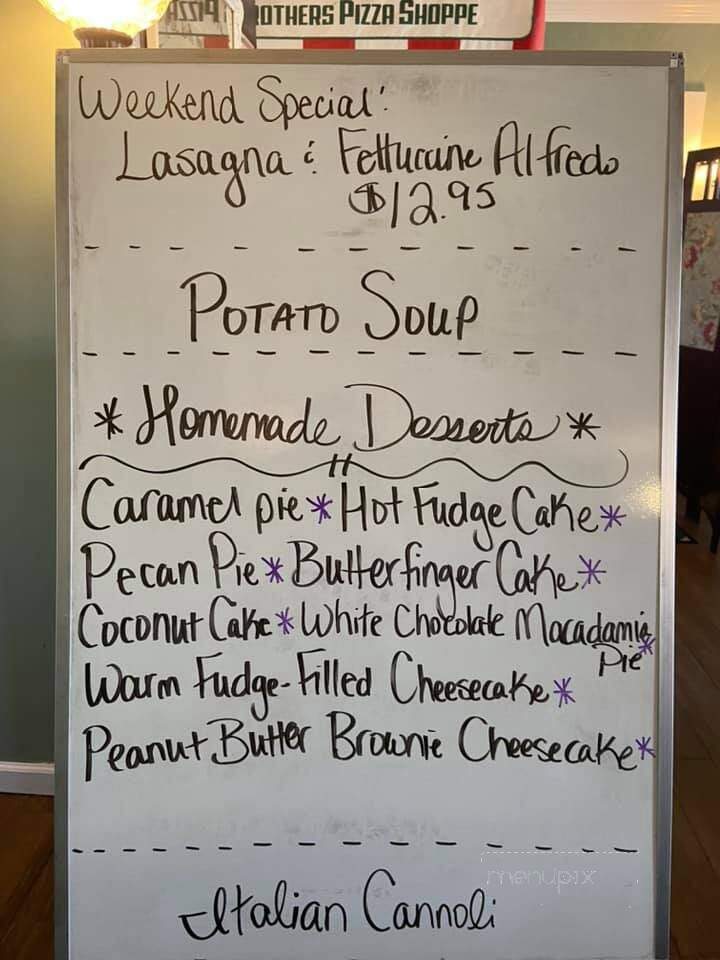 OTHERS PIZZA SHOPPE
Weekend Special:
Lasagna & Fettuccine Alfredo
$12.95
POTATO SOUP
* Homemade Desserts *
Caramel pie * Hot Fudge Cake *
Pecan Pie * Butterfinger Cake *
Coconut Cake * White Chocolate Macadamia
Pie *
Warm Fudge-Filled Cheesecake *
Peanut Butter Brownie Cheesecake *
Italian Cannoli
menupix